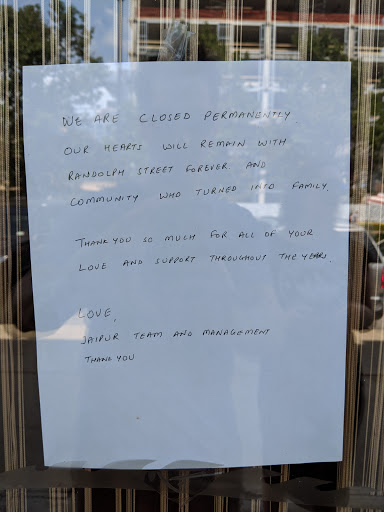 WE ARE CLOSED PERMANENTLY.
OUR HEARTS WILL REMAIN WITH
RANDOLPH STREET FOREVER. AND
COMMUNITY WHO TURNED INTO FAMILY.
THANK YOU SO MUCH FOR ALL OF YOUR
LOVE AND SUPPORT THROUGHOUT THE YEARS.
LOVE,
JAIPUR TEAM AND MANAGEMENT
THANK YOU